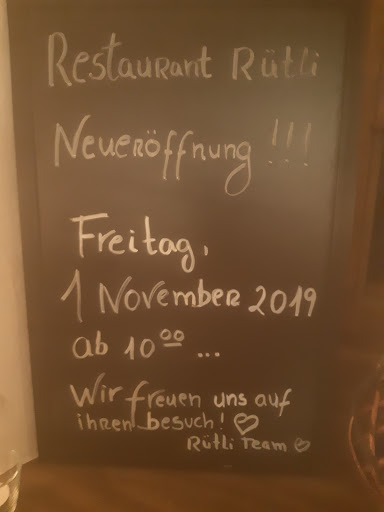 Restaurant Rütli
Neueröffnung !!!
Freitag,
1 November 2019
ab 10⁰⁰ ...
Wir freuen uns auf
ihren besuch! ♡
Rütli Team ♡